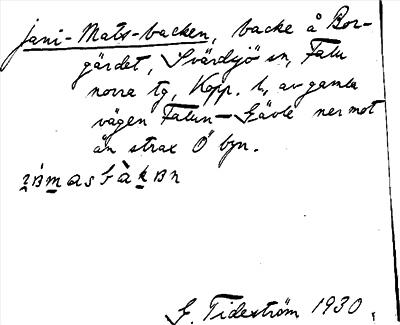 Jani-Mats-backen, backe å Bor-
gärdet, Svärdsjö sn, Falu
norra tg, Kopp. l., av gamla
vägen Falun—Gävle ner mot
ån strax Ö byn.
G. Tideström 1930.